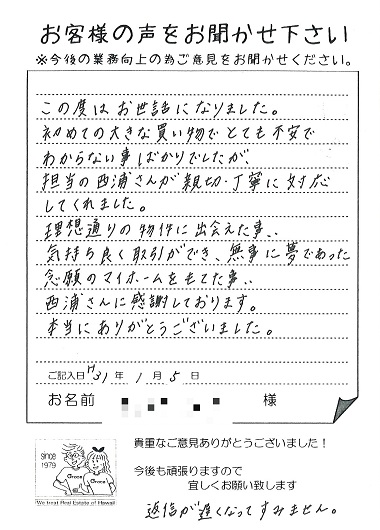 お客様の声をお聞かせ下さい
※今後の業務向上の為ご意見をお聞かせください。
この度はお世話になりました。
初めての大きな買い物でとても不安で
わからない事ばかりでしたが、
担当の西浦さんが親切・丁寧に対応
してくれました。
理想通りの物件に出会えた事、、
気持ち良く取引ができ、無事に夢であった
念願のマイホームをもてた事、、
西浦さんに感謝しております。
本当にありがとうございました。
ご記入日 H31年 1月 5日
お名前 様
since
1979
Grace
Grace
We treat Real Estate of Hawaii
貴重なご意見ありがとうございました!
今後も頑張りますので
宜しくお願い致します
返信が遅くなってすみません。